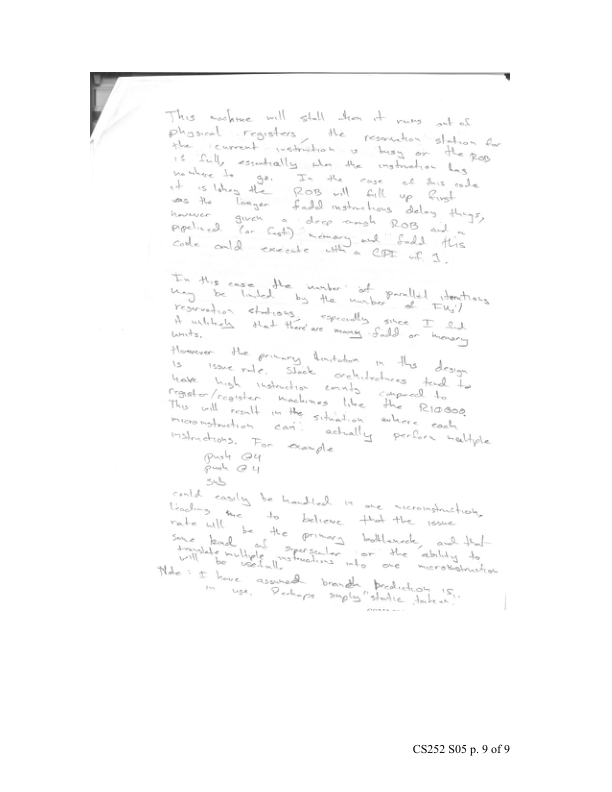 This machine will stall when it runs out of
physical registers, the reservation station for
the current instruction is busy or the ROB
is full, essentially when the instruction has
nowhere to go. In the case of this code
it is likely the ROB will fill up first
as the longer fadd instructions delay things,
however given a deep enough ROB and a
pipelined (or fast) memory and fadd this
code could execute with a CPI of 1.
In this case the number of parallel iterations
may be limited by the number of FUs/
reservation stations, especially since I find
it unlikely that there are many fadd or memory
units.
However the primary limitation in this design
is issue rate. Stack architectures tend to
have high instruction counts compared to
register/register machines like the R10000.
This will result in the situation where each
microinstruction can actually perform multiple
instructions. For example
push @4
push @4
sub
could easily be handled in one microinstruction,
leading me to believe that the issue
rate will be the primary bottleneck, and that
some kind of superscalar or the ability to
translate multiple instructions into one microinstruction
will be useful.
Note: I have assumed branch prediction is
in use. Perhaps simply "static taken".
CS252 S05 p. 9 of 9